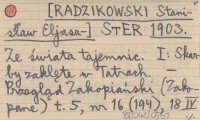 [RADZIKOWSKI Stani-
sław Eljasz-] STER 1903.
Ze świata tajemnic. I: Skar-
by zaklęte w Tatrach. —
Przegląd Zakopiański (Zako-
pane) t. 5, nr 16 (194), 18 IV